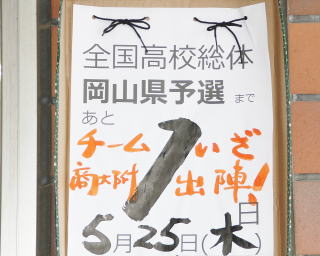 全国高校総体
岡山県予選 まで
あと
チーム 1 いざ
商大附 出陣!
日
5月25日(木)